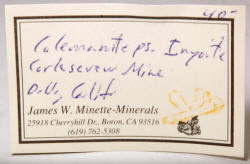 40-
Colemanite ps. Inyoite
Corkscrew Mine
D.V., Calif
James W. Minette-Minerals
25918 Cherryhill Dr., Boron, CA 93516
(619) 762-5308